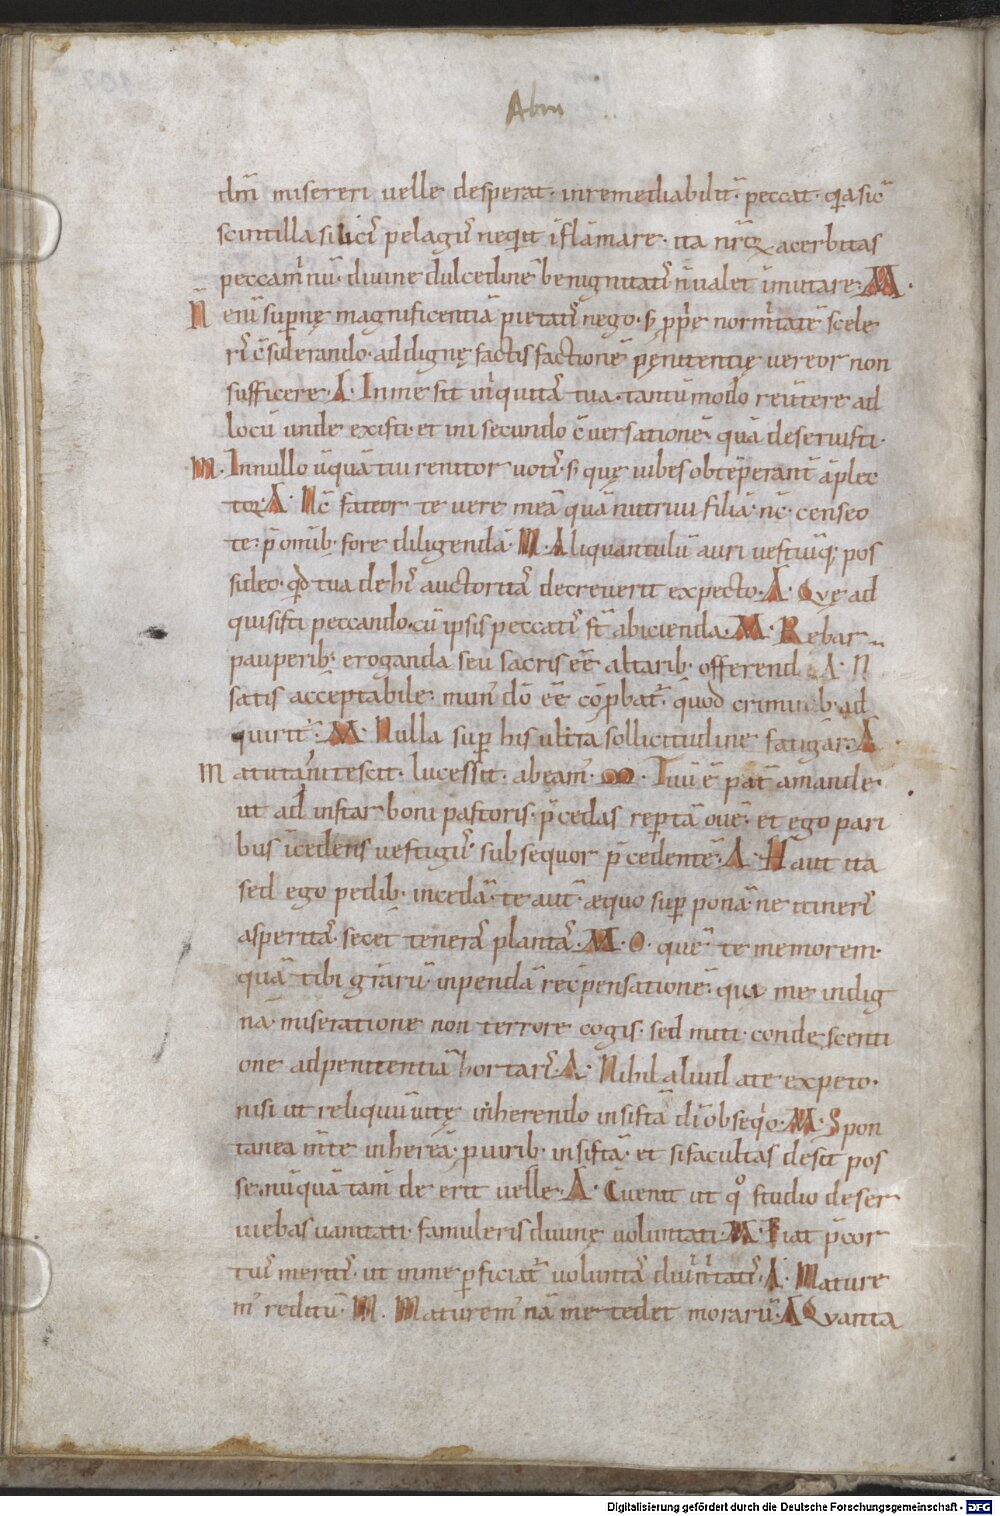 Abm
dm̄ misereri uelle desperat· inremediabilit̄ peccat· q̄a sic̄
scintilla silicī pelagū nequit īflāmare· ita nr̄orꝝ acerbitas
peccaminū· diuine dulcedinē benignitatī n̄ ualet inmutare· M·
N̄ enī sup̄nę magnificentiā pietatī nego· s; pp̄e normitatē scele
rī c̄siderando· ad dignę factis factionē pęnitentię uereor non
sufficere· A· In me sit iniquitā tua· tantūmodo reūtere ad
locū unde existi· et ini secundo c̄uersationē quā deseruisti·
M· In nullo ūquā tui renitor uotī· s; quę iubes obtēperant̄ āplec
tor· A· Nc̄ fateor te uere meā quā nutriui filiā· nc̄· censeo
te· p̄ omīb; fore diligendā· M· Aliquantulū auri uestiūq; pos
sideo· qd̄ tua de hī auctoritā decreuerit expecto· A· Quę ad
quisisti peccando· cū ipsis peccatī st̄ abicienda· M· Rebar
pauperib; eroganda seu sacris eē altarib; offerend· A· N̄
satis acceptabile· mun' dō eē cōp̄bat̄· quod criminib; ad
quirit̄· M· Nulla sup̄ his ultra sollicitudine fatigar· A
Matuta innitescit· lucessit· abeam'· M· Tuū ē pat̄ amande·
ut ad instar boni pastoris· p̄cedas rep̄tā ouē· et ego pari
bus īcedens uestigiī· subsequor p̄cedentē· A· Haut ita
sed ego pedib; incedā· te aut̄ æquo sup̄ponā· ne itinerī
asperitā· secet tenerā plantā· M· O· quē te memorem·
quā tibi gr̄arū inpendā rec̄pensationē· qui me indig
nā miseratione non terrore cogis· sed miti condescenti
one ad penitentiā hortarī· A· Nihil aliud a te expeto·
nisi ut reliquū uitę inherendo insistā dī obseq̄o· M· Spon
tanea m̄te inhereā· p uirib; insistā· et si facultas desit pos
se· nūquā tam̄ de erit uelle· A· Cuenit ut qo studio deser
uiebas uanitati· famuleris diuinę uoluntati· M· Fiat p̄cor
tuī meritī· ut in me p̄ficiat̄ uoluntā diuinitatī· A· Mature
m' reditū· M· Maturem' nā me tedet morarū· A Quanta
Digitalisierung gefördert durch die Deutsche Forschungsgemeinschaft - DFG